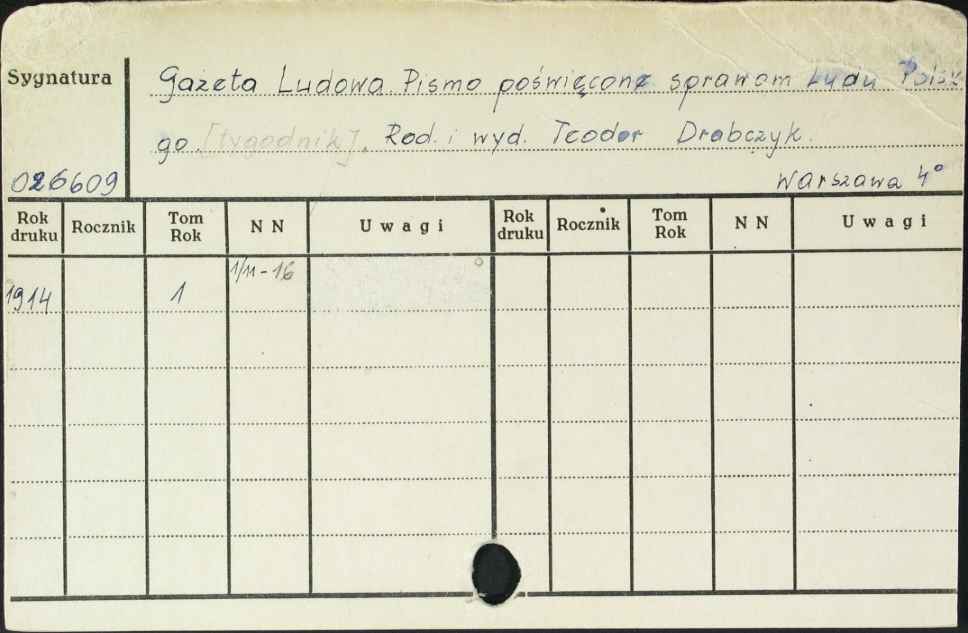 Sygnatura
Gazeta Ludowa Pismo poświęcone sprawom Ludu Polsk
go [tygodnik]. Red. i wyd. Teodor Drabczyk.
026609
Warszawa 4°
Rok druku Rocznik Tom Rok N N Uwagi Rok druku Rocznik Tom Rok N N Uwagi
1914 1 1/11-16